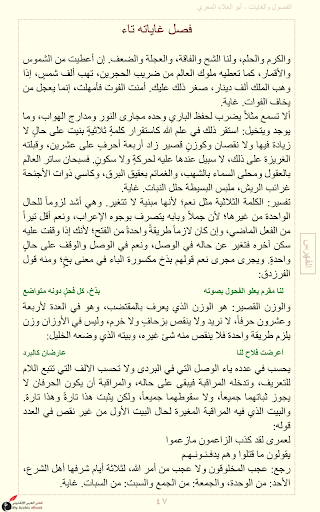 الفصول والغايات - أبو العلاء المعري
فصل غاياته تاء
والكرم والحلم، ولنا الشح والفاقة، والعجلة والضعف. إن أعطيت من الشموس
والأقمار، كما تعطيه ملوك العالم من ضريب الحجرين، تهب ألف شمس، إذا
وهب الملك ألف دينار، صغر ذلك عليك. أمنت الفوت فأمهلت، إنما يعجل من
يخاف الفوات. غاية.
ألا تسمع مثلاً يضرب لحفظ الباري وحده مجارى النور ومدارج الهواب، وما
يوجد ويتخيل: استقر ذلك في علم الله كاستقرار كلمةٍ ثلاثيةٍ بنيت على حالٍ لا
زيادة فيها ولا نقصان وكوزنٍ قصيرٍ زاد أربعة أحرفٍ على عشرين، وقبلته
الغريزة على ذلك، لا سبيل عندها عليه لحركةٍ ولا سكونٍ. فسبحان سائر العالم
بالعقول ومحلى السماء بالشهب، والغمائم بعقيق البرق، وكاسي ذوات الأجنحة
غرائب الريش، ملبس البسيطة حلل النبات. غاية.
تفسير: الكلمة الثلاثية مثل نعم؛ لأنها مبنية لا تتغير. وهي أشد لزوماً للحال
الواحدة من غيرها؛ لأن جملاً وبابه يتصرف بوجوه الإعراب، ونعم أقل تيراً
من الفعل الماضي، وإن كان لازماً طريقةً واحدةً من الفتح؛ لأنك إذا وقفت عليه
سكن آخره فتغير عن حاله في الوصل، ونعم في الوصل والوقف على حالٍ
واحدةٍ. ويجرى مجرى نعم قولهم بذخ مكسورة الباء في معنى بخ؛ ومنه قول
الفرزدق:
لنا مقرم يعلو الفحول بصوته بذخ، كل فحلٍ دونه متواضع
والوزن القصير: هو الوزن الذي يعرف بالمقتضب، وهو في العدة لأربعة
وعشرون حرفاً، لا نريد ولا ينقص بزحافٍ ولا خرم، وليس في الأوزان وزن
يلزم طريقة واحدة فلا ينقص منه شئ غيره، وبيته الذي وضعه الخليل:
أعرضت فلاح لنا عارضان كالبرد
يحسب في عدده ياء الوصل التي في البردى ولا تحسب الألف التي تتبع اللام
للتعريف، وتدخله المراقبة فيبقى على حاله، والمراقبة أن يكون الحرفان لا
يجوز ثباتهما جميعاً، ولا سقوطهما جميعاً، ولكن يثبت هذا تارةً وهذا تارة.
والبيت الذي فيه المراقبة المغيرة لحال البيت الأول من غير نقص في العدد
قوله:
لعمرى لقد كذب الزاعمون مازعموا
يقولون ما قتلوا وهم يدفنونهم
رجع: عجب المخلوقون ولا عجب من أمر الله، لثلاثة أيام شرفها أهل الشرع،
الأحد: من الوحدة، والجمعة: من الجمع والسبت: من السبات. غاية.
الفهرس
٤٧